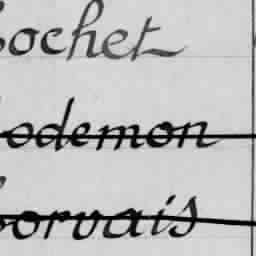 ochet
odemon
orvais